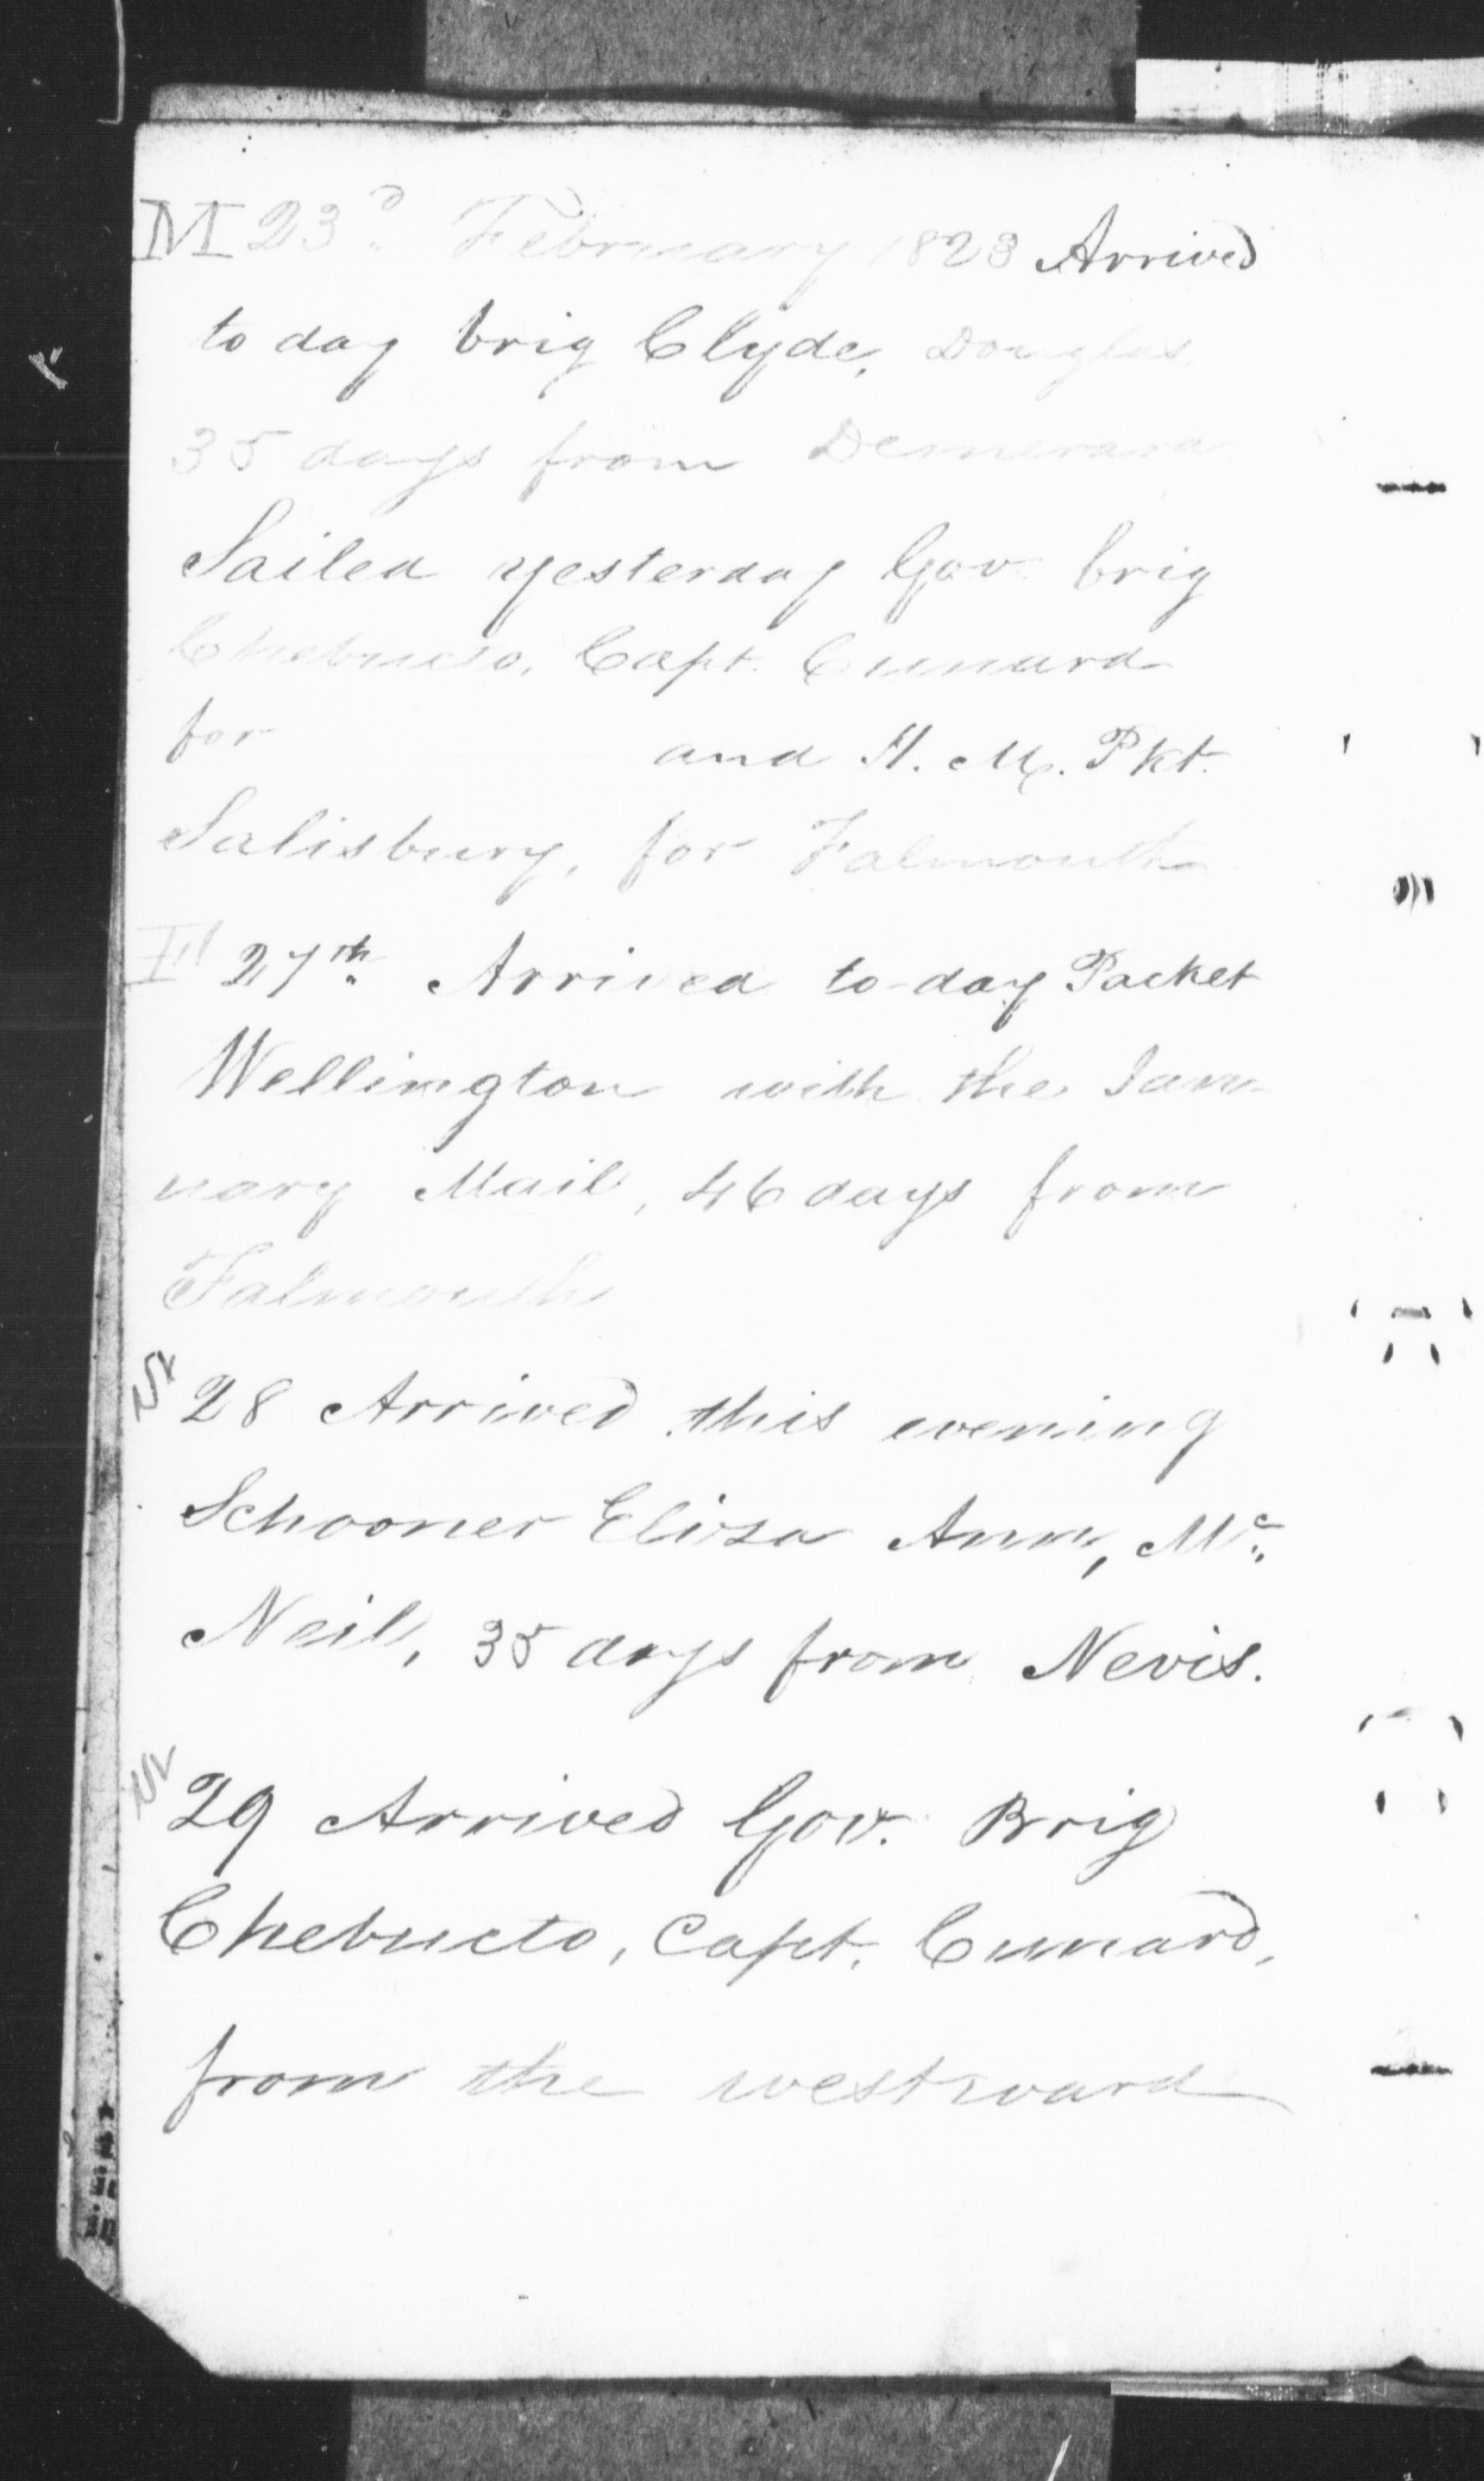 M 23d. February 1823 Arrived
to day brig Clyde, Douglas,
35 days from Demerara
Sailed yesterday Gov. brig
Chebucto, Capt. Cunard
for and H. M. Pkt.
Salisbury, for Falmouth
27th. Arrived to-day Packet
Wellington with the Jan-
uary Mail, 46 days from
Falmouth
28 Arrived this evening
Schooner Eliza Ann, Mc.
Neil, 35 days from Nevis.
29 Arrived Gov. Brig
Chebucto, Capt. Cunard,
from the westward